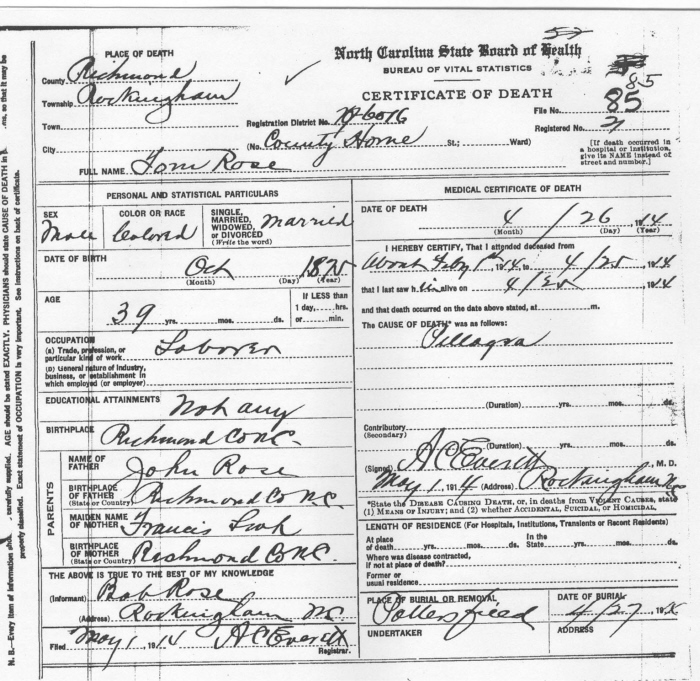 PLACE OF DEATH
County Richmond
Township Rockingham
Town
City
52
North Carolina State Board of Health
BUREAU OF VITAL STATISTICS
CERTIFICATE OF DEATH
85
File No. 85
Registration District No.
Registered No.
(No. County Home St.; Ward)
[If death occurred in
a hospital or institution,
give its NAME instead of
street and number.]
FULL NAME Tom Rose
PERSONAL AND STATISTICAL PARTICULARS
SEX
Male
COLOR OR RACE
Colored
SINGLE,
MARRIED,
WIDOWED,
or DIVORCED
(Write the word)
Married
DATE OF BIRTH
Oct 187
(Month) (Day) (Year)
AGE
39 yrs. mos. ds.
If LESS than
1 day, hrs.
or min.
OCCUPATION
(a) Trade, profession, or
particular kind of work Laborer
(b) General nature of industry,
business, or establishment in
which employed (or employer)
EDUCATIONAL ATTAINMENTS Not any
BIRTHPLACE Richmond Co NC.
PARENTS
NAME OF
FATHER John Rose
BIRTHPLACE
OF FATHER
(State or Country) Richmond Co NC.
MAIDEN NAME
OF MOTHER Francis
BIRTHPLACE
OF MOTHER
(State or Country) Richmond Co NC.
THE ABOVE IS TRUE TO THE BEST OF MY KNOWLEDGE
(Informant) Bob Rose
(Address) Rockingham NC.
Filed May 1, 1914 A C Everett
Registrar.
MEDICAL CERTIFICATE OF DEATH
DATE OF DEATH
4 / 26 1914
(Month) (Day) (Year)
I HEREBY CERTIFY, That I attended deceased from
About Feby 1st 1914, to 4/25 1914
that I last saw him alive on 4/25 1914
and that death occurred on the date above stated, at m.
The CAUSE OF DEATH* was as follows:
Pellagra
(Duration) yrs. mos. ds.
Contributory
(Secondary)
(Duration) yrs. mos. ds.
(Signed) A C Everett, M. D.
May 1, 1914 (Address) Rockingham NC
*State the DISEASE CAUSING DEATH, or, in deaths from VIOLENT CAUSES, state
(1) MEANS OF INJURY; and (2) whether ACCIDENTAL, SUICIDAL, or HOMICIDAL.
LENGTH OF RESIDENCE (For Hospitals, Institutions, Transients or Recent Residents)
At place
of death yrs. mos. ds.
In the
State yrs. mos. ds.
Where was disease contracted,
if not at place of death?
Former or
usual residence
PLACE OF BURIAL OR REMOVAL
Pottersfield
DATE OF BURIAL
4/27 191
UNDERTAKER
ADDRESS
N. B.—Every item of information should be carefully supplied. AGE should be stated EXACTLY. PHYSICIANS should state CAUSE OF DEATH in
ms, so that it may be
properly classified. Exact statement of OCCUPATION is very important. See instructions on back of certificate.